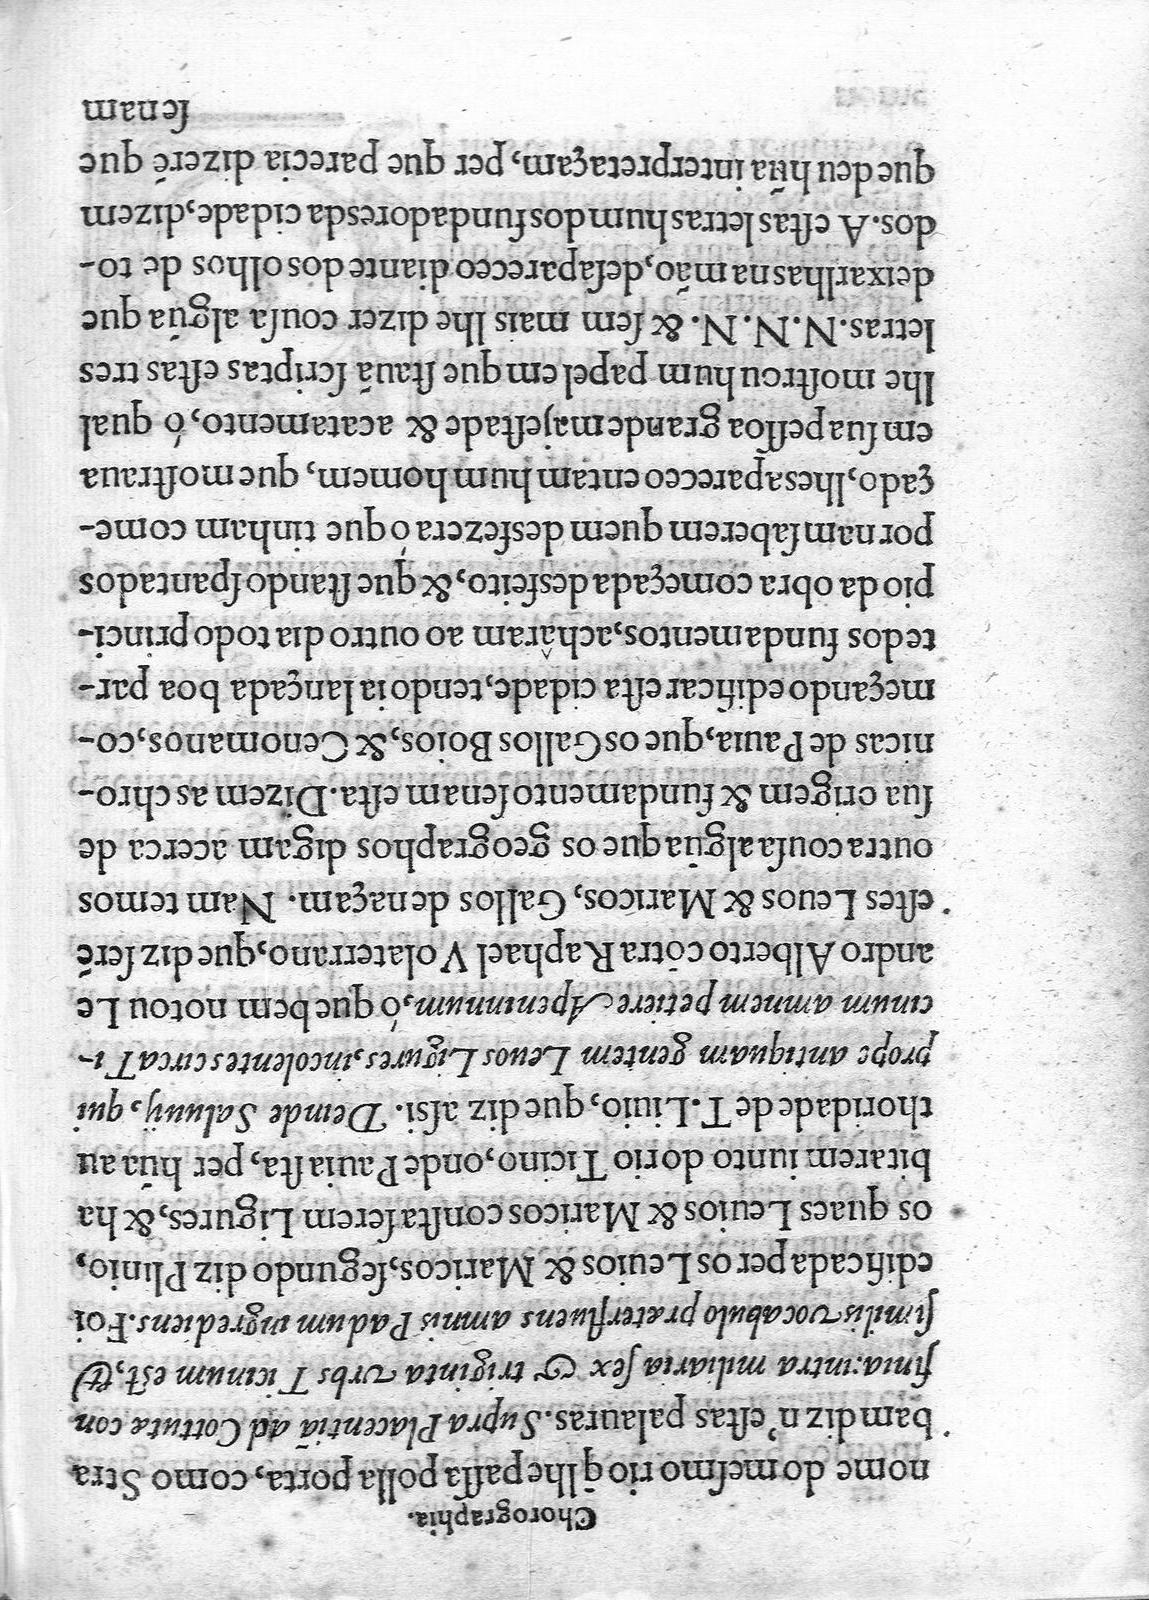 Chorographia.
nome do meſmo rio q̃ lhe paſſa polla porta, como Stra
bam diz n'eſtas palauras. Supra Placentiã ad Cottutæ con
finia: intra miliaria ſex & triginta vrbs Ticinum eſt, &
ſimilis vocabulo præterfluens amnis Padum ingrediens. Foi
edificada per os Leuios & Maricos, ſegundo diz Plinio,
os quaes Leuios & Maricos conſta ſerem Ligures, & ha
bitarem iunto do rio Ticino, onde Pauia ſta, per hũa au
thoridade de T. Liuio, que diz aſsi. Deinde Saluuij, qui
prope antiquam gentem Leuos Ligures, incolentes circa Ti-
cinum amnem petiere Apeninnum, ó que bem notou Le
andro Alberto cõtra Raphael Volaterrano, que diz ſerẽ
eſtes Leuos & Maricos, Gallos de naçam. Nam temos
outra couſa algũa que os geographos digam acerca de
ſua origem & fundamento ſenam eſta. Dizem as chro-
nicas de Pauia, que os Gallos Boios, & Cenomanos, co-
meçando edificar eſta cidade, tendo ia lançada boa par-
te dos fundamentos, acharam ao outro dia todo princi-
pio da obra começada desfeito, & que ſtando ſpantados
por nam ſaberem quem desfezera ó que tinham come-
çado, lhes apareceo entam hum homem, que moſtraua
em ſua peſſoa grande majeſtade & acatamento, ó qual
lhe moſtrou hum papel em que ſtauã ſcriptas eſtas tres
letras. N. N. N. & ſem mais lhe dizer couſa algũa que
deixarlhas na mão, deſapareceo diante dos olhos de to-
dos. A eſtas letras hum dos fundadores da cidade, dizem
que deu hũa interpretaçam, per que parecia dizerẽ que
ſenam